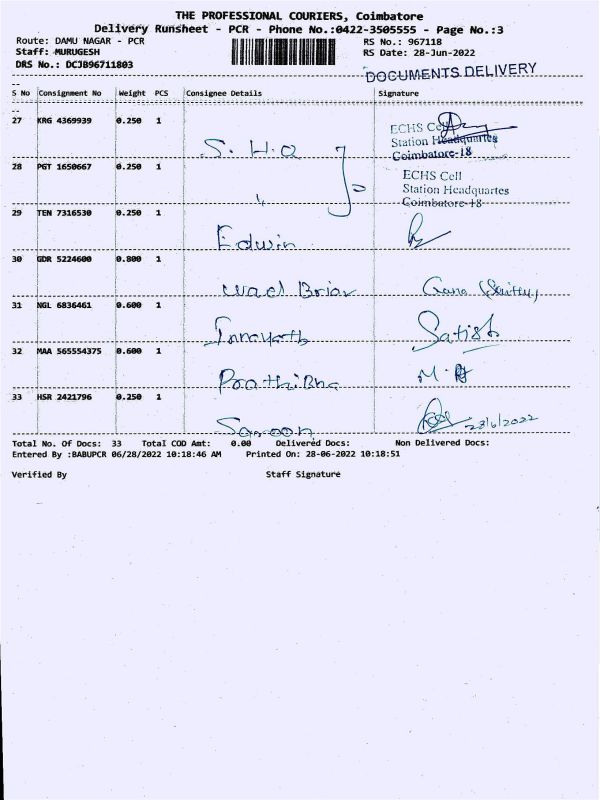 THE PROFESSIONAL COURIERS, Coimbatore
Delivery Runsheet - PCR - Phone No.:0422-3505555 - Page No.:3
Route: DAMU NAGAR - PCR RS No.: 967118
Staff: MURUGESH RS Date: 28-Jun-2022
DRS No.: DCJB96711803
DOCUMENTS DELIVERY
S No Consignment No Weight PCS Consignee Details Signature
27 KRG 4369939 0.250 1
S. H. Q
ECHS Cell
Station Headquartes
Coimbatore-18
28 PGT 1650667 0.250 1
ECHS Cell
Station Headquartes
Coimbatore-18
29 TEN 7316530 0.250 1
Edwin
30 GDR 5224600 0.800 1
31 NGL 6836461 0.600 1
Satish
32 MAA 565554375 0.600 1
Prathibha
33 HSR 2421796 0.250 1
28/6/2022
Total No. Of Docs: 33 Total COD Amt: 0.00 Delivered Docs: Non Delivered Docs:
Entered By :BABUPCR 06/28/2022 10:18:46 AM Printed On: 28-06-2022 10:18:51
Verified By Staff Signature